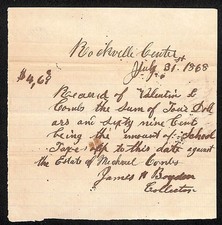 Rockville Center
July 31st 1868
$4,69
Received of Valentin
Combs the sum of Four Doll
ars and Sixty nine Cent
being the amount of School
Tax up to this date against
the Estate of Michael Combs
James H
Collector